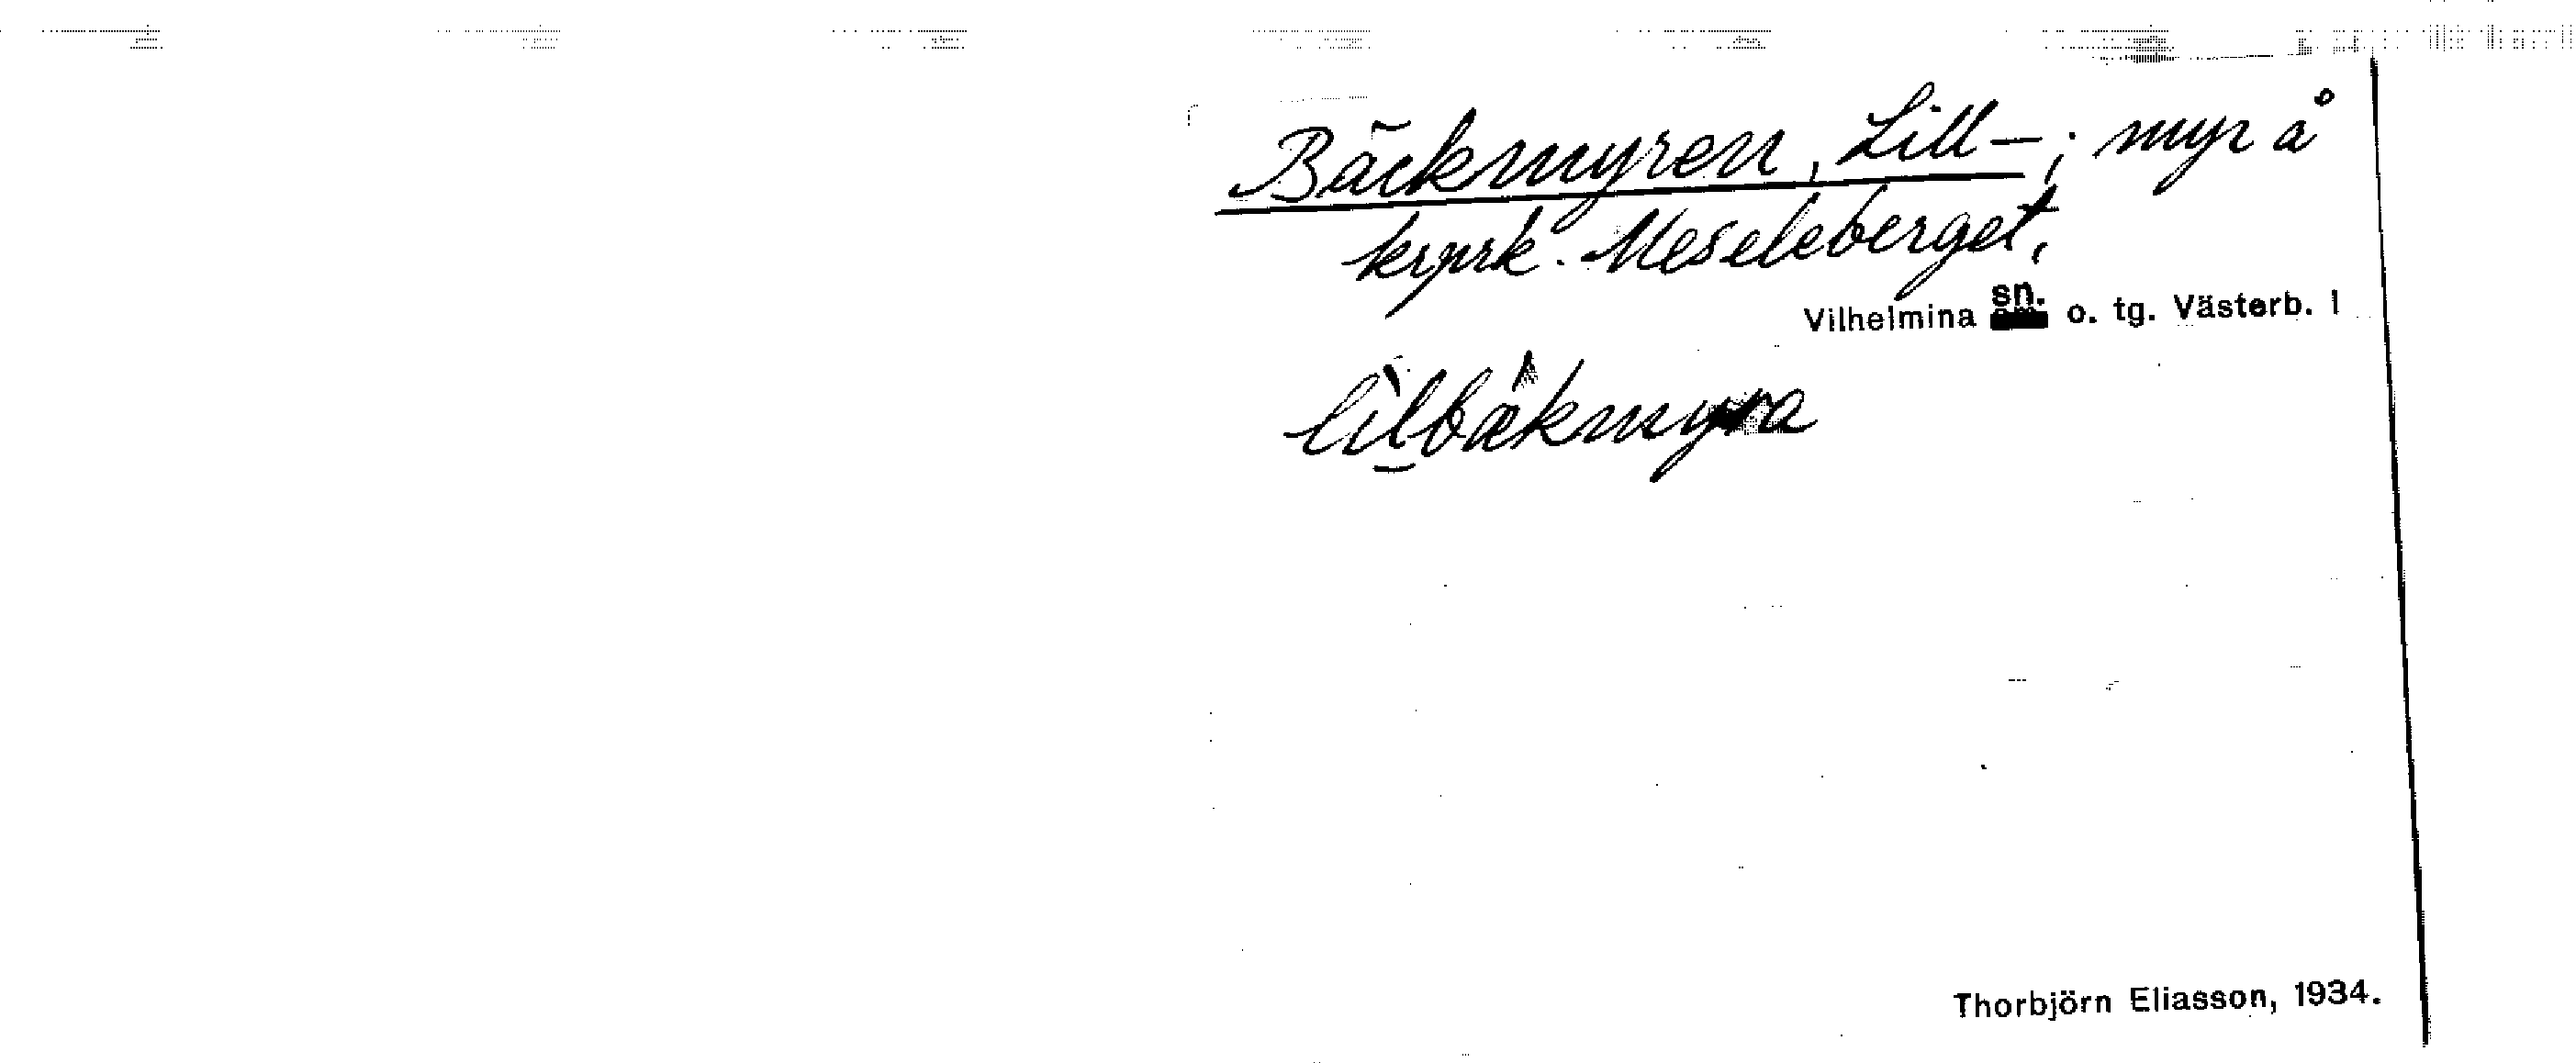 Bäckmyren, Lill-; myr å
krprk. Meseleberget,
Vilhelmina sn. o. tg. Västerb. l
lìlbækmyra
Thorbjörn Eliasson, 1934.